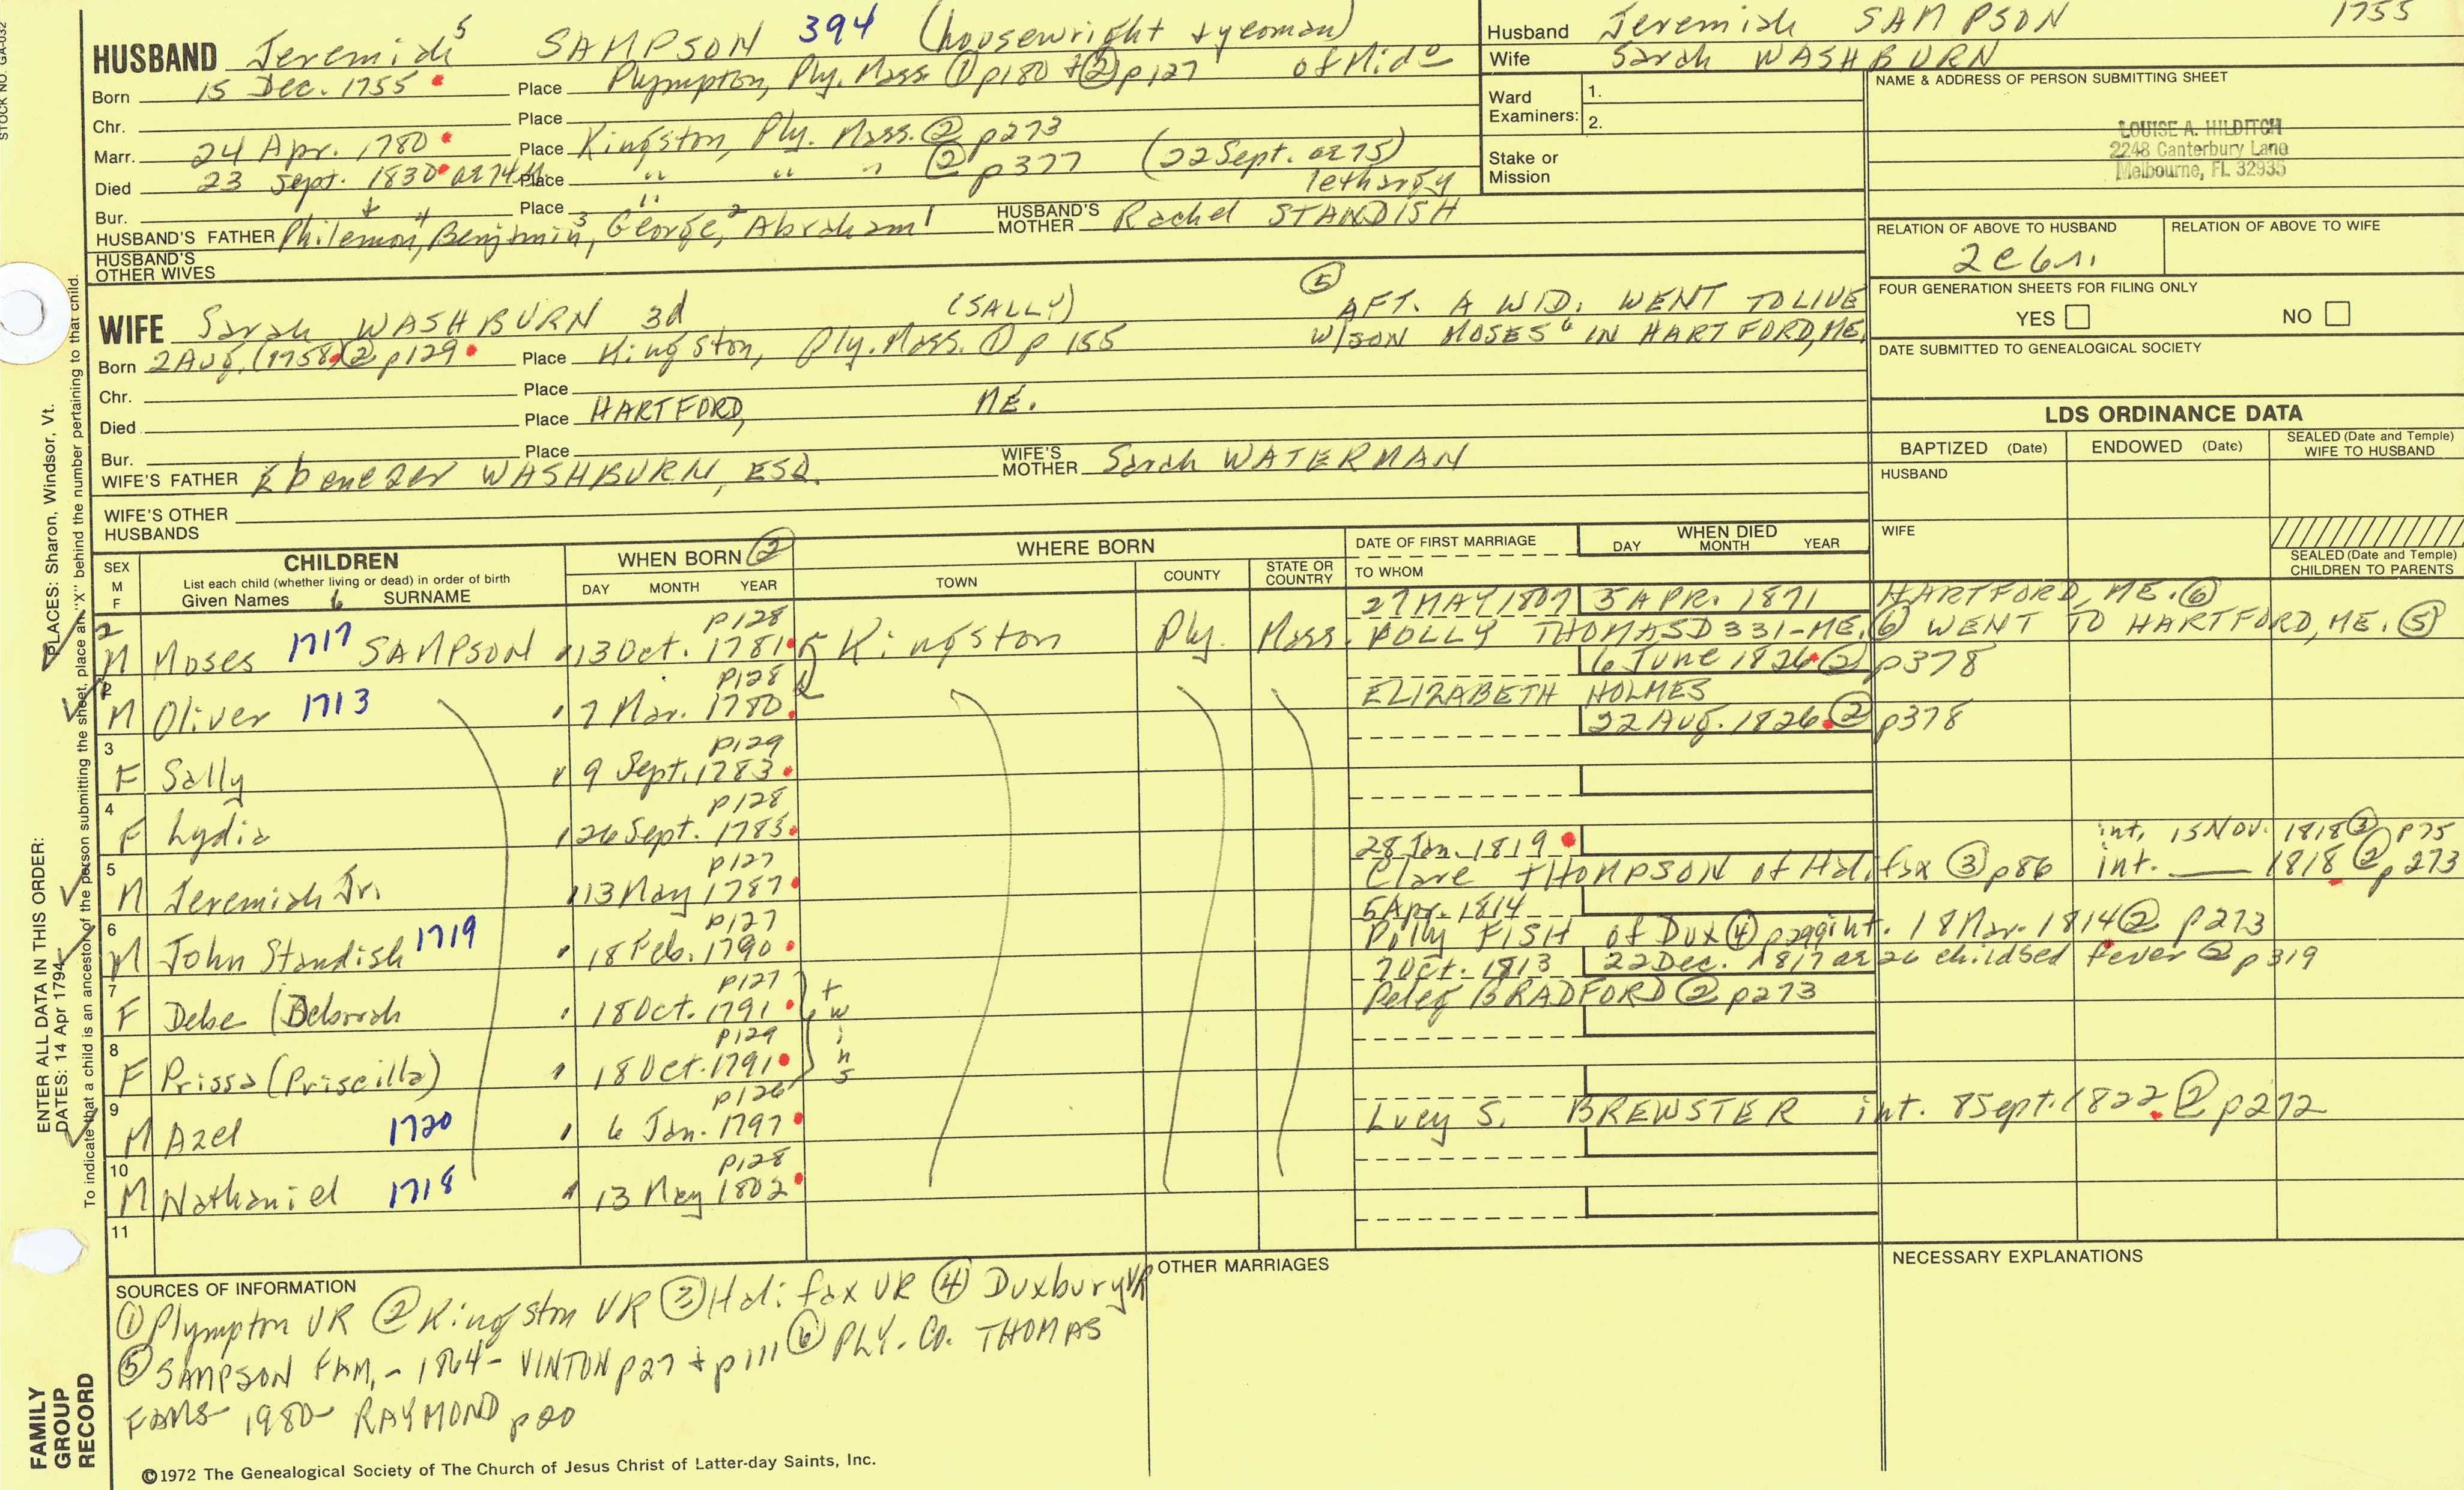 STOCK NO. GA-032
HUSBAND Jeremiah⁵ SAMPSON 394 (housewright + yeoman)
Born 15 Dec. 1755 Place Plympton, Ply. Mass. ① p180 + ② p127 of Mido
Chr. Place
Marr. 24 Apr. 1780 Place Kingston, Ply. Mass. ② p273
Died 23 Sept. 1830 Place " " " ② p377 (22 Sept. ae 75) lethargy
Bur. Place "
HUSBAND'S FATHER Philemon⁴, Benjamin³, George², Abraham¹ HUSBAND'S MOTHER Rachel STANDISH
HUSBAND'S OTHER WIVES
WIFE Sarah WASHBURN 3d (SALLY)
⑤ AFT. A WID. WENT TO LIVE
W/SON MOSES⁶ IN HARTFORD, ME.
Born 2 Aug. (1758) ② p129 Place Kingston, Ply. Mass. ① p 155
Chr. Place
Died Place HARTFORD, ME.
Bur. Place
WIFE'S FATHER Ebenezer WASHBURN, ESQ. WIFE'S MOTHER Sarah WATERMAN
WIFE'S OTHER HUSBANDS
Husband Jeremiah SAMPSON 1755
Wife Sarah WASHBURN
Ward Examiners: 1.
2.
Stake or Mission
NAME & ADDRESS OF PERSON SUBMITTING SHEET
LOUISE A. HILDITCH
2248 Canterbury Lane
Melbourne, FL 32935
RELATION OF ABOVE TO HUSBAND RELATION OF ABOVE TO WIFE
FOUR GENERATION SHEETS FOR FILING ONLY
YES NO
DATE SUBMITTED TO GENEALOGICAL SOCIETY
LDS ORDINANCE DATA
BAPTIZED (Date) ENDOWED (Date) SEALED (Date and Temple) WIFE TO HUSBAND
HUSBAND
WIFE
SEALED (Date and Temple) CHILDREN TO PARENTS
SEX M F CHILDREN
List each child (whether living or dead) in order of birth
Given Names 6 SURNAME
WHEN BORN ②
DAY MONTH YEAR
WHERE BORN
TOWN COUNTY STATE OR COUNTRY
DATE OF FIRST MARRIAGE
TO WHOM
WHEN DIED
DAY MONTH YEAR
2 M Moses 1717 SAMPSON 13 Oct. 1781 p128 Kingston Ply. Mass. 27 MAY 1807 5 APR. 1871 HARTFORD, ME. ⑥
POLLY THOMAS D331-ME. ⑥ WENT TO HARTFORD, ME. ⑤
M Oliver 1713 7 Mar. 1780 p128 6 June 1826 ② p378
ELIZABETH HOLMES
3 F Sally 9 Sept. 1783 p129 22 Aug. 1826 ② p378
4 F Lydia 26 Sept. 1785 p128
5 M Jeremiah Jr. 13 May 1787 p127 28 Jan. 1819 int. 15 NOV. 1818 ③ p75
Clare THOMPSON of Halifax ③ p86 int. ___ 1818 ② p273
6 M John Standish 1719 18 Feb. 1790 p127 5 Apr. 1814
Polly FISH of Dux ④ p299 int. 18 Mar. 1814 ② p273
7 F Debe (Deborah 18 Oct. 1791 p127 twins 7 Oct. 1813 22 Dec. 1817 ae 26 childbed fever ② p319
Peleg BRADFORD ② p273
8 F Prissa (Priscilla) 18 Oct. 1791 p129
9 M Azel 1720 6 Jan. 1797 p126
Lucy S. BREWSTER int. 8 Sept. 1822 ② p272
10 M Nathaniel 1718 13 May 1802 p128
11
SOURCES OF INFORMATION
① Plympton VR ② Kingston VR ③ Halifax VR ④ Duxbury VR
⑤ SAMPSON FAM. - 1864 - VINTON p27 + p111 ⑥ PLY. CO. THOMAS
FAMS 1980 RAYMOND p20
OTHER MARRIAGES
NECESSARY EXPLANATIONS
©1972 The Genealogical Society of The Church of Jesus Christ of Latter-day Saints, Inc.
FAMILY GROUP RECORD
ENTER ALL DATA IN THIS ORDER:
DATES: 14 Apr 1794
PLACES: Sharon, Windsor, Vt.
To indicate that a child is an ancestor of the person submitting the sheet, place an "X" behind the number pertaining to that child.